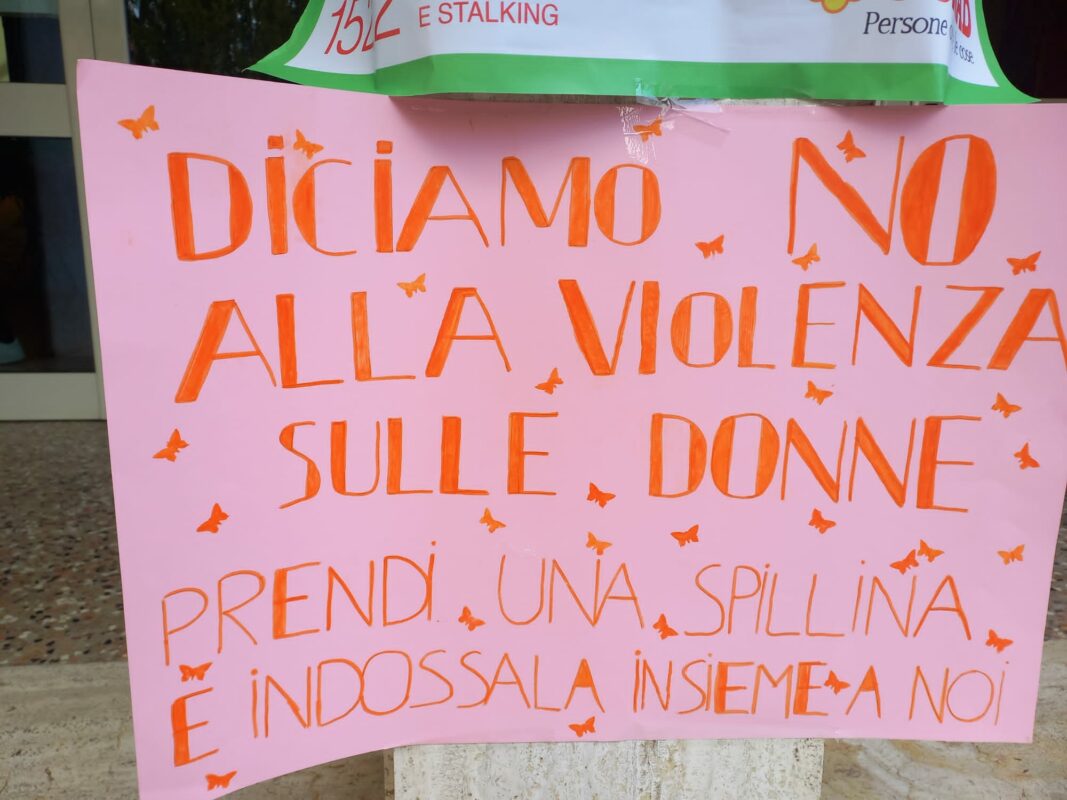 1522
E STALKING
Persone
cose
DiCiAMO NO
ALLA VIOLENZA
SULLE DONNE
PRENDi UNA SPiLLiNA
E iNDOSSALA iNSiEME A NOi